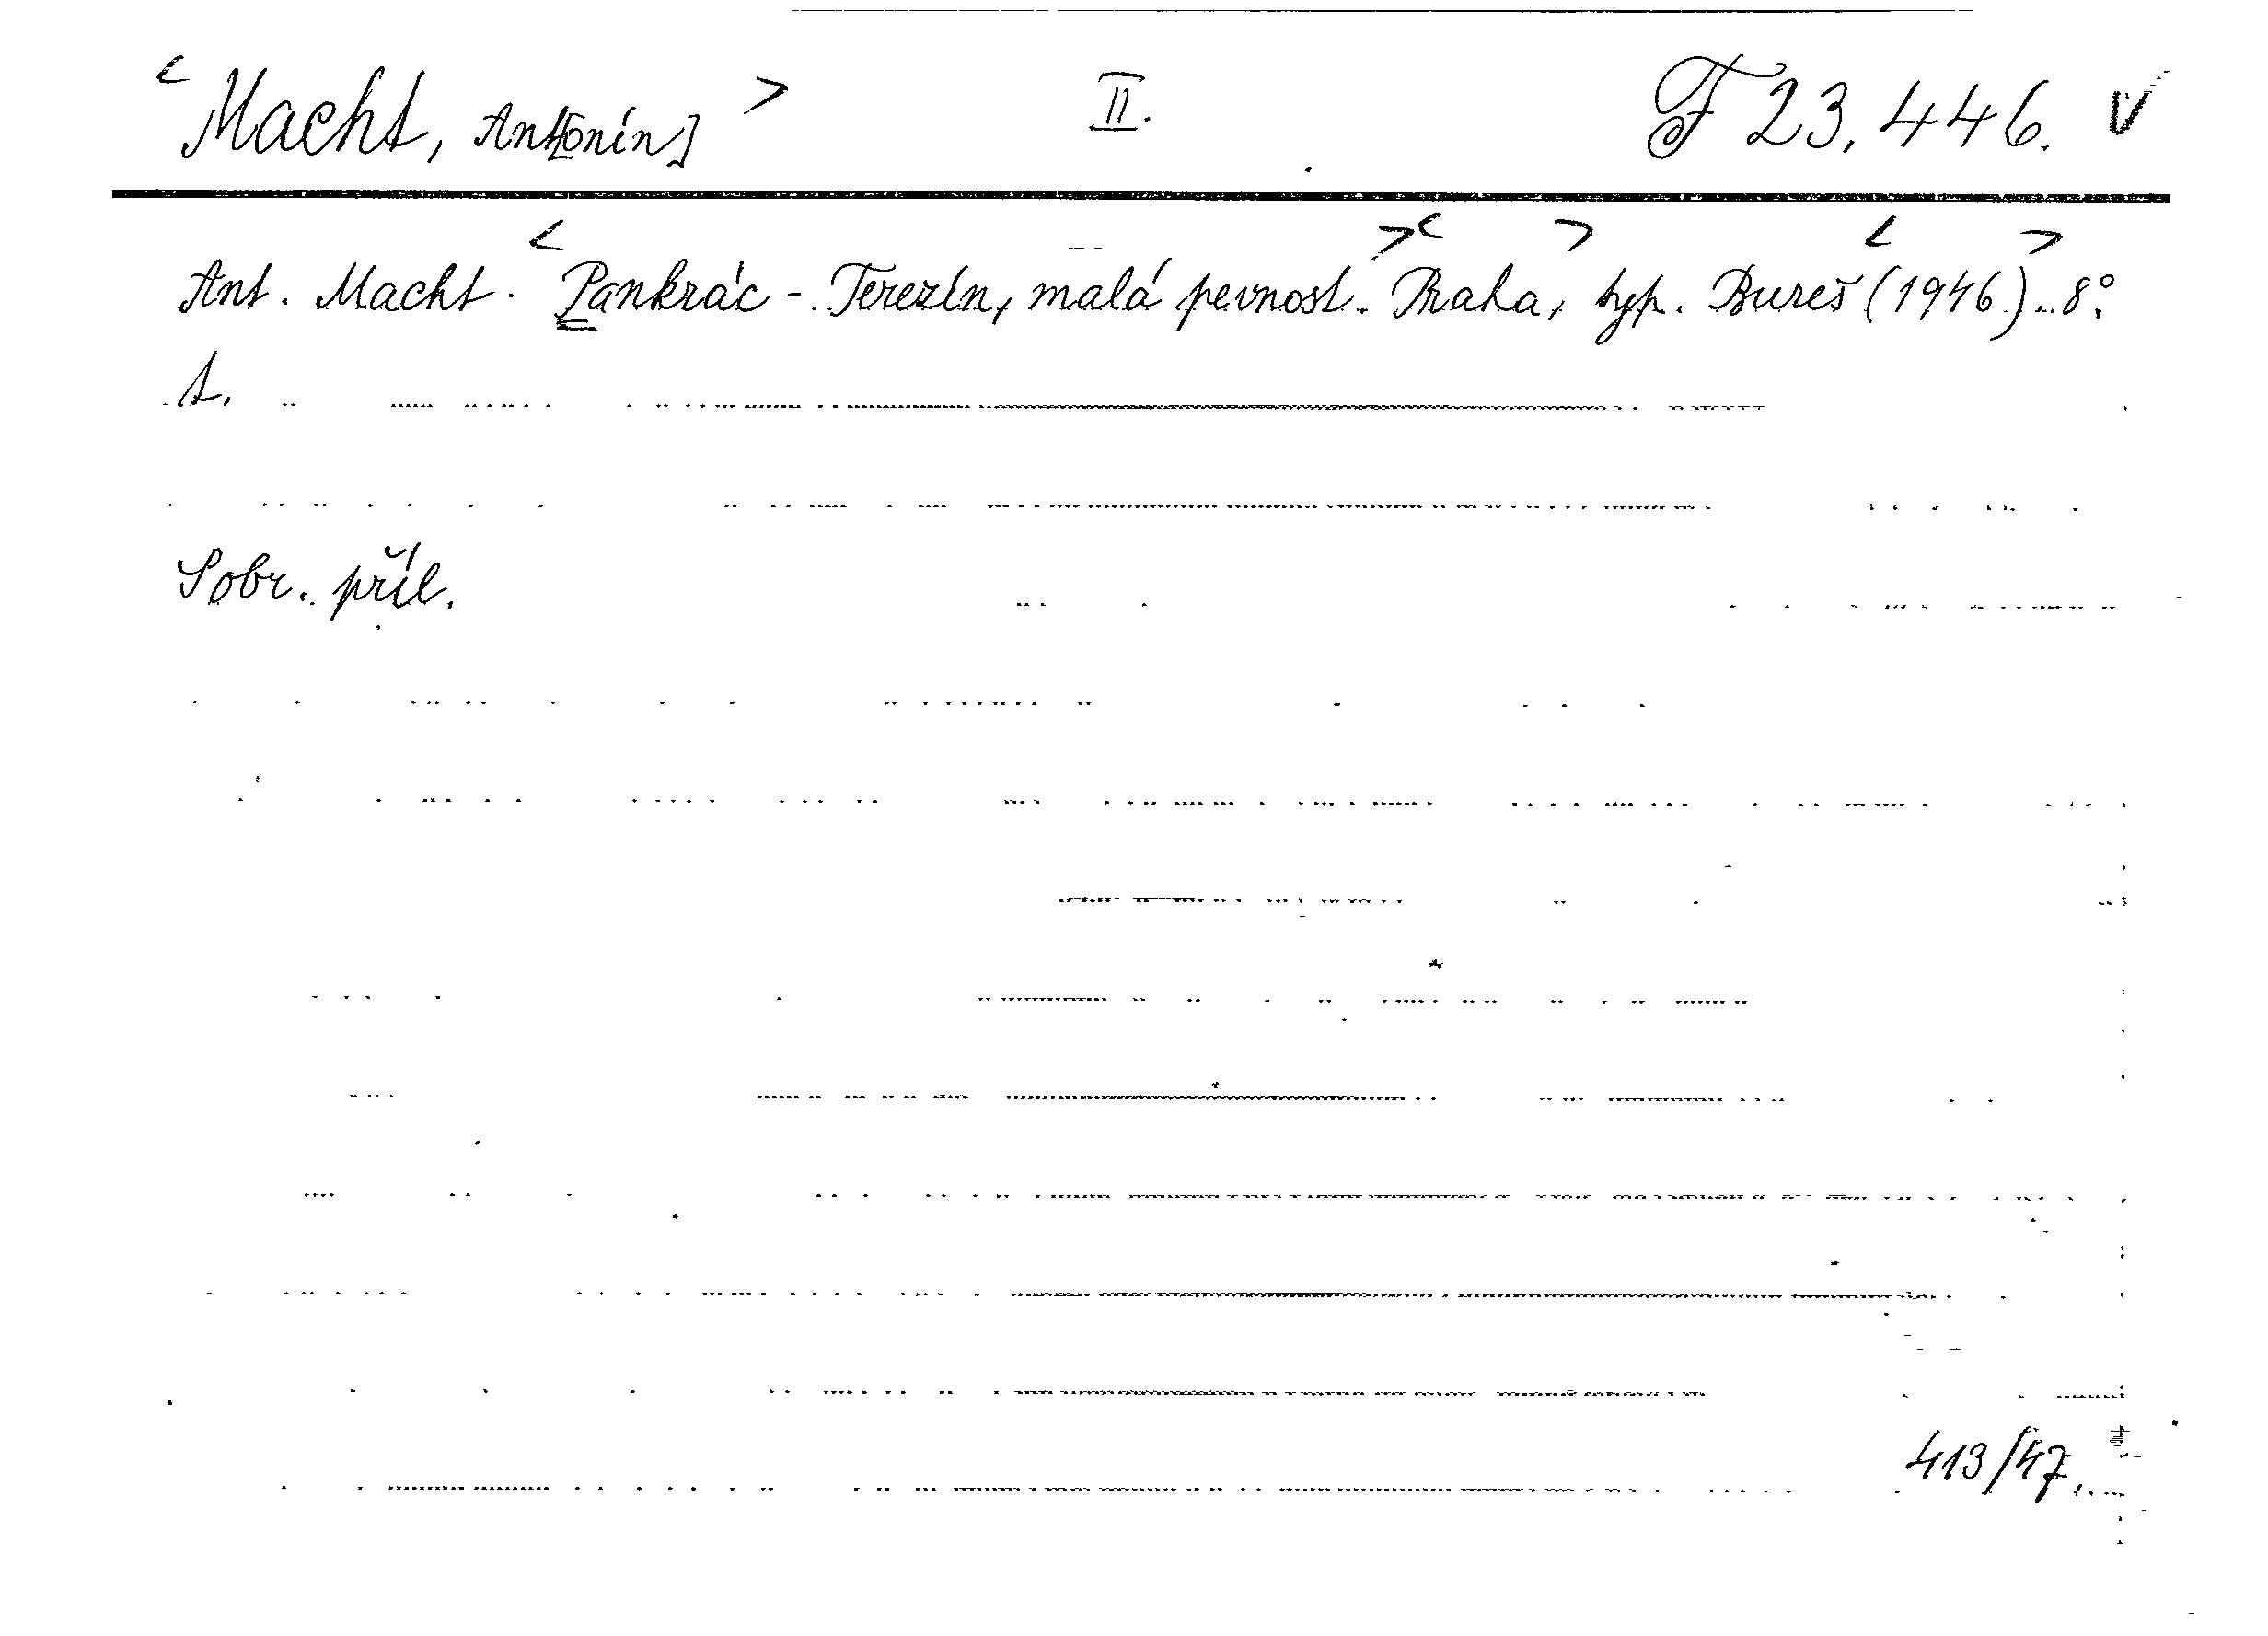 <Macht, Ant[onín]> II. F 23.446. V
Ant. Macht. <Pankrác - Terezín, malá pevnost.> <Praha,> typ. Bureš <(1946)>. 8°.
t.
Sobr. příl.
413/47.